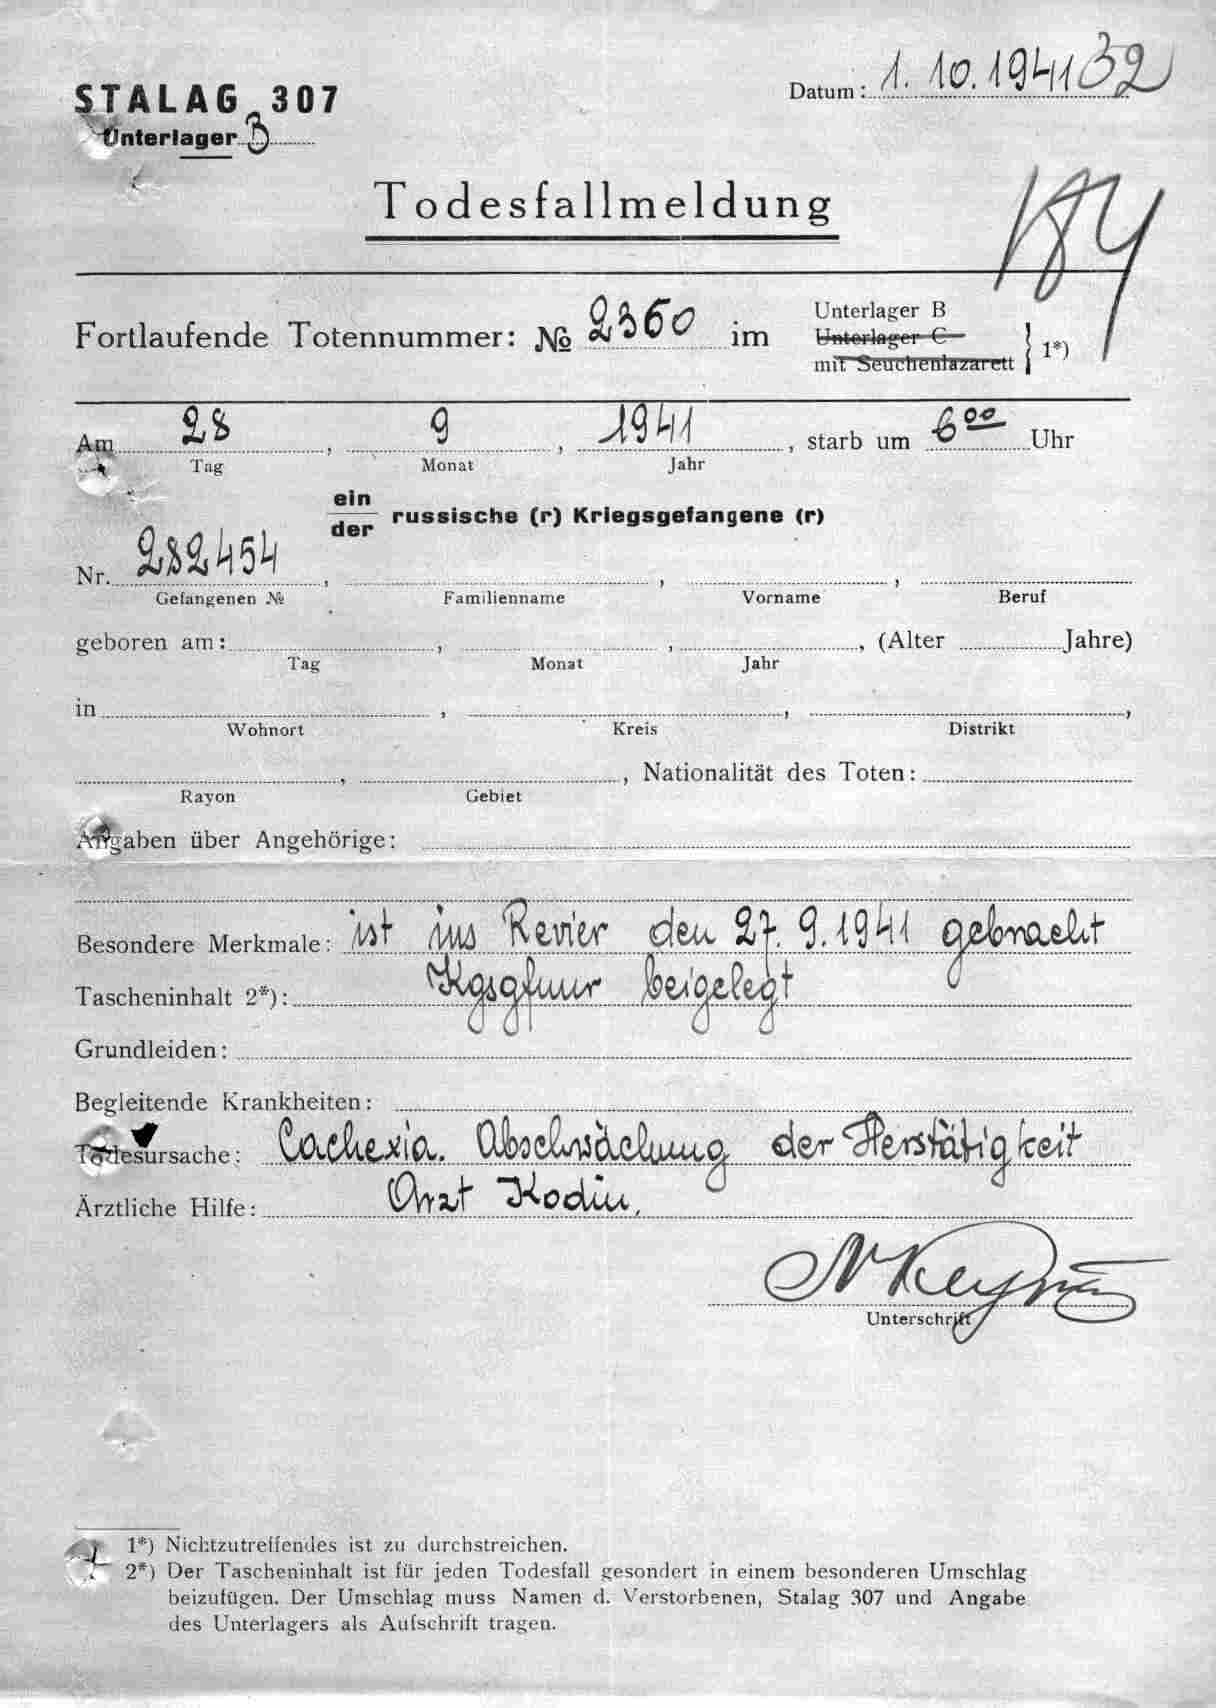 STALAG 307
Unterlager B
Datum: 1. 10. 1941 32
Todesfallmeldung
184
Fortlaufende Totennummer: № 2360 im
Unterlager B
Unterlager C
mit Seuchenlazarett } 1*)
Am 28, 9, 1941, starb um 6⁰⁰ Uhr
Tag Monat Jahr
ein
der russische (r) Kriegsgefangene (r)
Nr. 282454, , ,
Gefangenen № Familienname Vorname Beruf
geboren am: , , , (Alter Jahre)
Tag Monat Jahr
in , , ,
Wohnort Kreis Distrikt
, , Nationalität des Toten:
Rayon Gebiet
Angaben über Angehörige:
Besondere Merkmale: ist ins Revier den 27. 9. 1941 gebracht
Tascheninhalt 2*): beigelegt
Grundleiden:
Begleitende Krankheiten:
Todesursache: Cachexia. Abschwächung der Herstätigkeit
Ärztliche Hilfe: Arzt Kodin.
Unterschrift
1*) Nichtzutreffendes ist zu durchstreichen.
2*) Der Tascheninhalt ist für jeden Todesfall gesondert in einem besonderen Umschlag
beizufügen. Der Umschlag muss Namen d. Verstorbenen, Stalag 307 und Angabe
des Unterlagers als Aufschrift tragen.